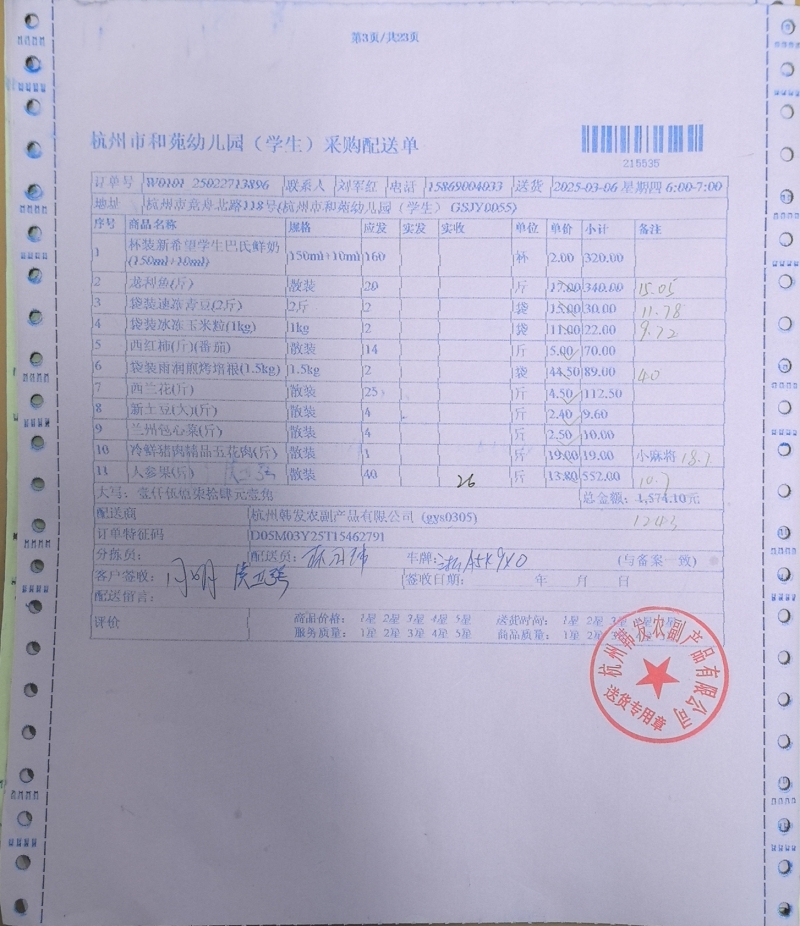 第3页/共23页
杭州市和苑幼儿园（学生）采购配送单
215535
订单号 W0101 25022713896 联系人 刘军红 电话 15869004033 送货 2025-03-06 星期四 6:00-7:00
地址 杭州市 北路118号(杭州市和苑幼儿园（学生） GSJY0055)
序号 商品名称 规格 应发 实发 实收 单位 单价 小计 备注
1 杯装新希望学生巴氏鲜奶(150ml+10ml) 150ml+10ml 160 杯 2.00 320.00
2 龙利鱼(斤) 散装 20 斤 17.00 340.00 15.05
3 袋装速冻青豆(2斤) 2斤 2 袋 15.00 30.00 11.78
4 袋装冰冻玉米粒(1kg) 1kg 2 袋 11.00 22.00 9.72
5 西红柿(斤)(番茄) 散装 14 斤 5.00 70.00
6 袋装雨润煎烤培根(1.5kg) 1.5kg 2 袋 44.50 89.00 40
7 西兰花(斤) 散装 25 斤 4.50 112.50
8 新土豆(大)(斤) 散装 4 斤 2.40 9.60
9 兰州包心菜(斤) 散装 4 斤 2.50 10.00
10 冷鲜猪肉精品五花肉(斤) 散装 1 斤 19.00 19.00 小麻将 18.7
11 人参果(斤) 散装 40 26 斤 13.80 552.00 10.7
大写：壹仟伍佰柒拾肆元壹角 总金额：1,574.10元
配送商 杭州韩发农副产品有限公司 (gys0305) 1243
订单特征码 D05M03Y25T15462791
分拣员： 配送员： 车牌：浙A5K9X0 (与备案一致)
客户签收： 签收日期： 年 月 日
配送留言：
评价 商品价格： 1星 2星 3星 4星 5星 送货时间： 1星 2星 3星 4星 5星
服务质量： 1星 2星 3星 4星 5星 商品质量： 1星 2星 3星 4星 5星
杭州韩发农副产品有限公司
送货专用章